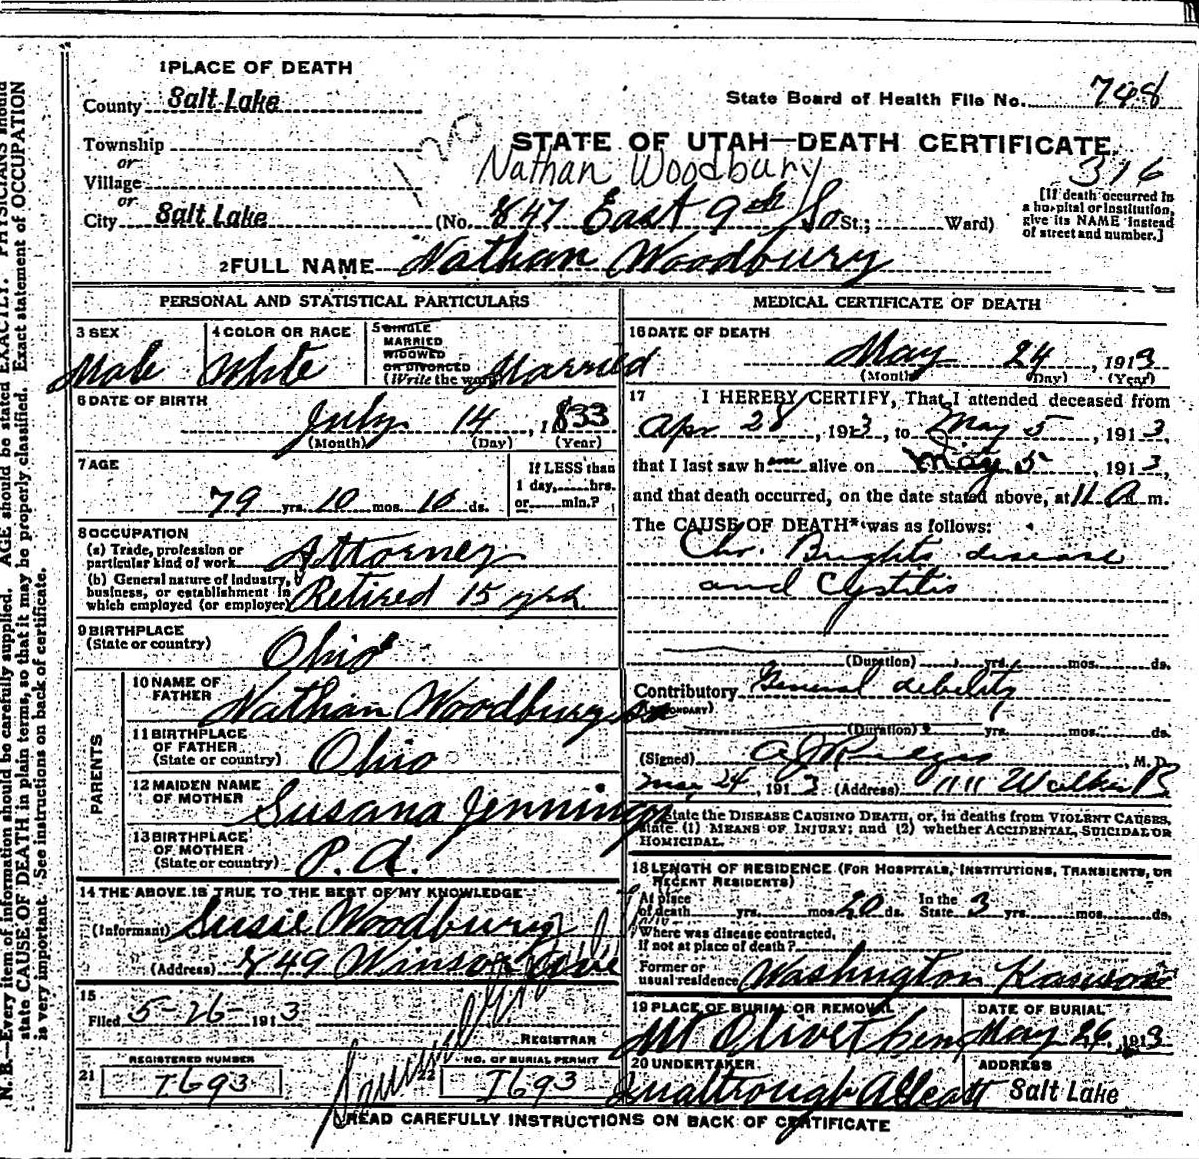 1 PLACE OF DEATH
County Salt Lake
State Board of Health File No. 748
Township
or
Village
or
City Salt Lake
120
STATE OF UTAH—DEATH CERTIFICATE.
Nathan Woodbury
316
(No. 847 East 9th So St.; Ward)
[If death occurred in
a hospital or institution,
give its NAME instead
of street and number.]
2 FULL NAME Nathan Woodbury
PERSONAL AND STATISTICAL PARTICULARS
3 SEX
Male
4 COLOR OR RACE
White
5 SINGLE
MARRIED
WIDOWED
OR DIVORCED
(Write the word) Married
6 DATE OF BIRTH
July 14, 1833
(Month) (Day) (Year)
7 AGE
79 yrs. 10 mos. 10 ds.
If LESS than
1 day, hrs.
or min.?
8 OCCUPATION
(a) Trade, profession or
particular kind of work Attorney
(b) General nature of industry,
business, or establishment in
which employed (or employer) Retired 15 yrs
9 BIRTHPLACE
(State or country)
Ohio
PARENTS
10 NAME OF
FATHER
Nathan Woodbury
11 BIRTHPLACE
OF FATHER
(State or country) Ohio
12 MAIDEN NAME
OF MOTHER
Susana Jennings
13 BIRTHPLACE
OF MOTHER
(State or country) P.A.
14 THE ABOVE IS TRUE TO THE BEST OF MY KNOWLEDGE
(Informant) Susie Woodbury
(Address) 849 Winsor
15
Filed 5-26- 1913
REGISTRAR
REGISTERED NUMBER
21 I693
NO. OF BURIAL PERMIT
22 I693
MEDICAL CERTIFICATE OF DEATH
16 DATE OF DEATH
May 24, 1913
(Month) (Day) (Year)
17 I HEREBY CERTIFY, That I attended deceased from
Apr 28, 1913, to May 5, 1913,
that I last saw him alive on May 5, 1913,
and that death occurred, on the date stated above, at 11 A m.
The CAUSE OF DEATH* was as follows:
Chr. Brights disease
and Cystitis
(Duration) yrs. mos. ds.
Contributory General debility
(SECONDARY)
(Duration) yrs. mos. ds.
(Signed) M. D.
May 24, 1913 (Address) 1111 Walker B
*State the DISEASE CAUSING DEATH, or, in deaths from VIOLENT CAUSES,
state (1) MEANS OF INJURY; and (2) whether ACCIDENTAL, SUICIDAL OR
HOMICIDAL.
18 LENGTH OF RESIDENCE (FOR HOSPITALS, INSTITUTIONS, TRANSIENTS, OR
RECENT RESIDENTS)
At place
of death yrs. mos. 20 ds.
In the
State 3 yrs. mos. ds.
Where was disease contracted,
if not at place of death?
Former or
usual residence Washington Kansas
19 PLACE OF BURIAL OR REMOVAL
Mt Olivet Cem
DATE OF BURIAL
May 26, 1913
20 UNDERTAKER
ADDRESS
Salt Lake
READ CAREFULLY INSTRUCTIONS ON BACK OF CERTIFICATE
N. B.—Every item of information should be carefully supplied. AGE should be stated EXACTLY. PHYSICIANS should
state CAUSE OF DEATH in plain terms, so that it may be properly classified. Exact statement of OCCUPATION
is very important. See instructions on back of certificate.